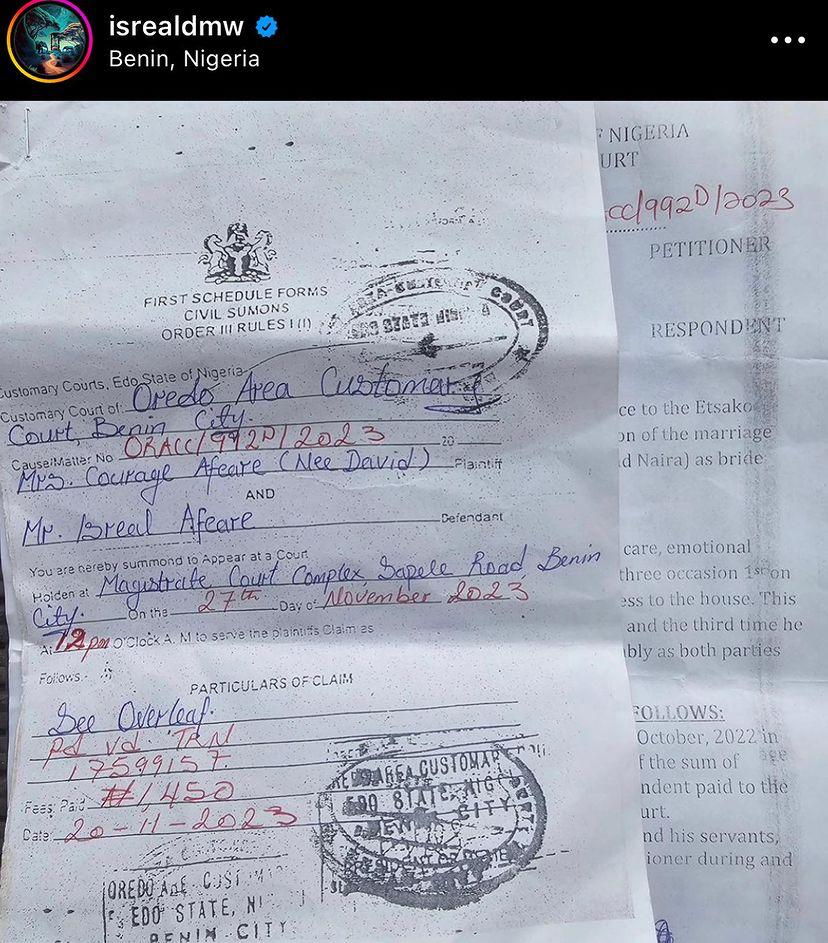 isrealdmw
Benin, Nigeria
FIRST SCHEDULE FORMS
CIVIL SUMONS
ORDER III RULES I (I)
Customary Courts, Edo State of Nigeria
Customary Court of: Oredo Area Customary
Court, Benin City.
Cause/Matter No. ORACC/992D/2023 20
Mrs. Courage Afeare (Nee David) Plaintiff
AND
Mr. Isreal Afeare Defendant
You are hereby summond to Appear at a Court
Holden at Magistrate Court Complex, Sapele Road, Benin
City. On the 27th Day of November 2023
At 12pm O'Clock A. M to serve the plaintiffs Claim as
Follows:-
PARTICULARS OF CLAIM
See Overleaf.
Pd vd TRN
17599157
Fees; Paid ₦1,450
Date: 20-11-2023
AREA CUSTOMARY COURT
EDO STATE
AREA CUSTOMARY
EDO STATE
CITY
OREDO
EDO STATE,
BENIN CITY
NIGERIA
URT
CC/992D/2023
PETITIONER
RESPONDENT
ce to the Etsako
on of the marriage
d Naira) as bride
care, emotional
three occasion 1st on
ess to the house. This
and the third time he
bly as both parties
FOLLOWS:
October, 2022 in
f the sum of
ndent paid to the
urt.
nd his servants,
ioner during and